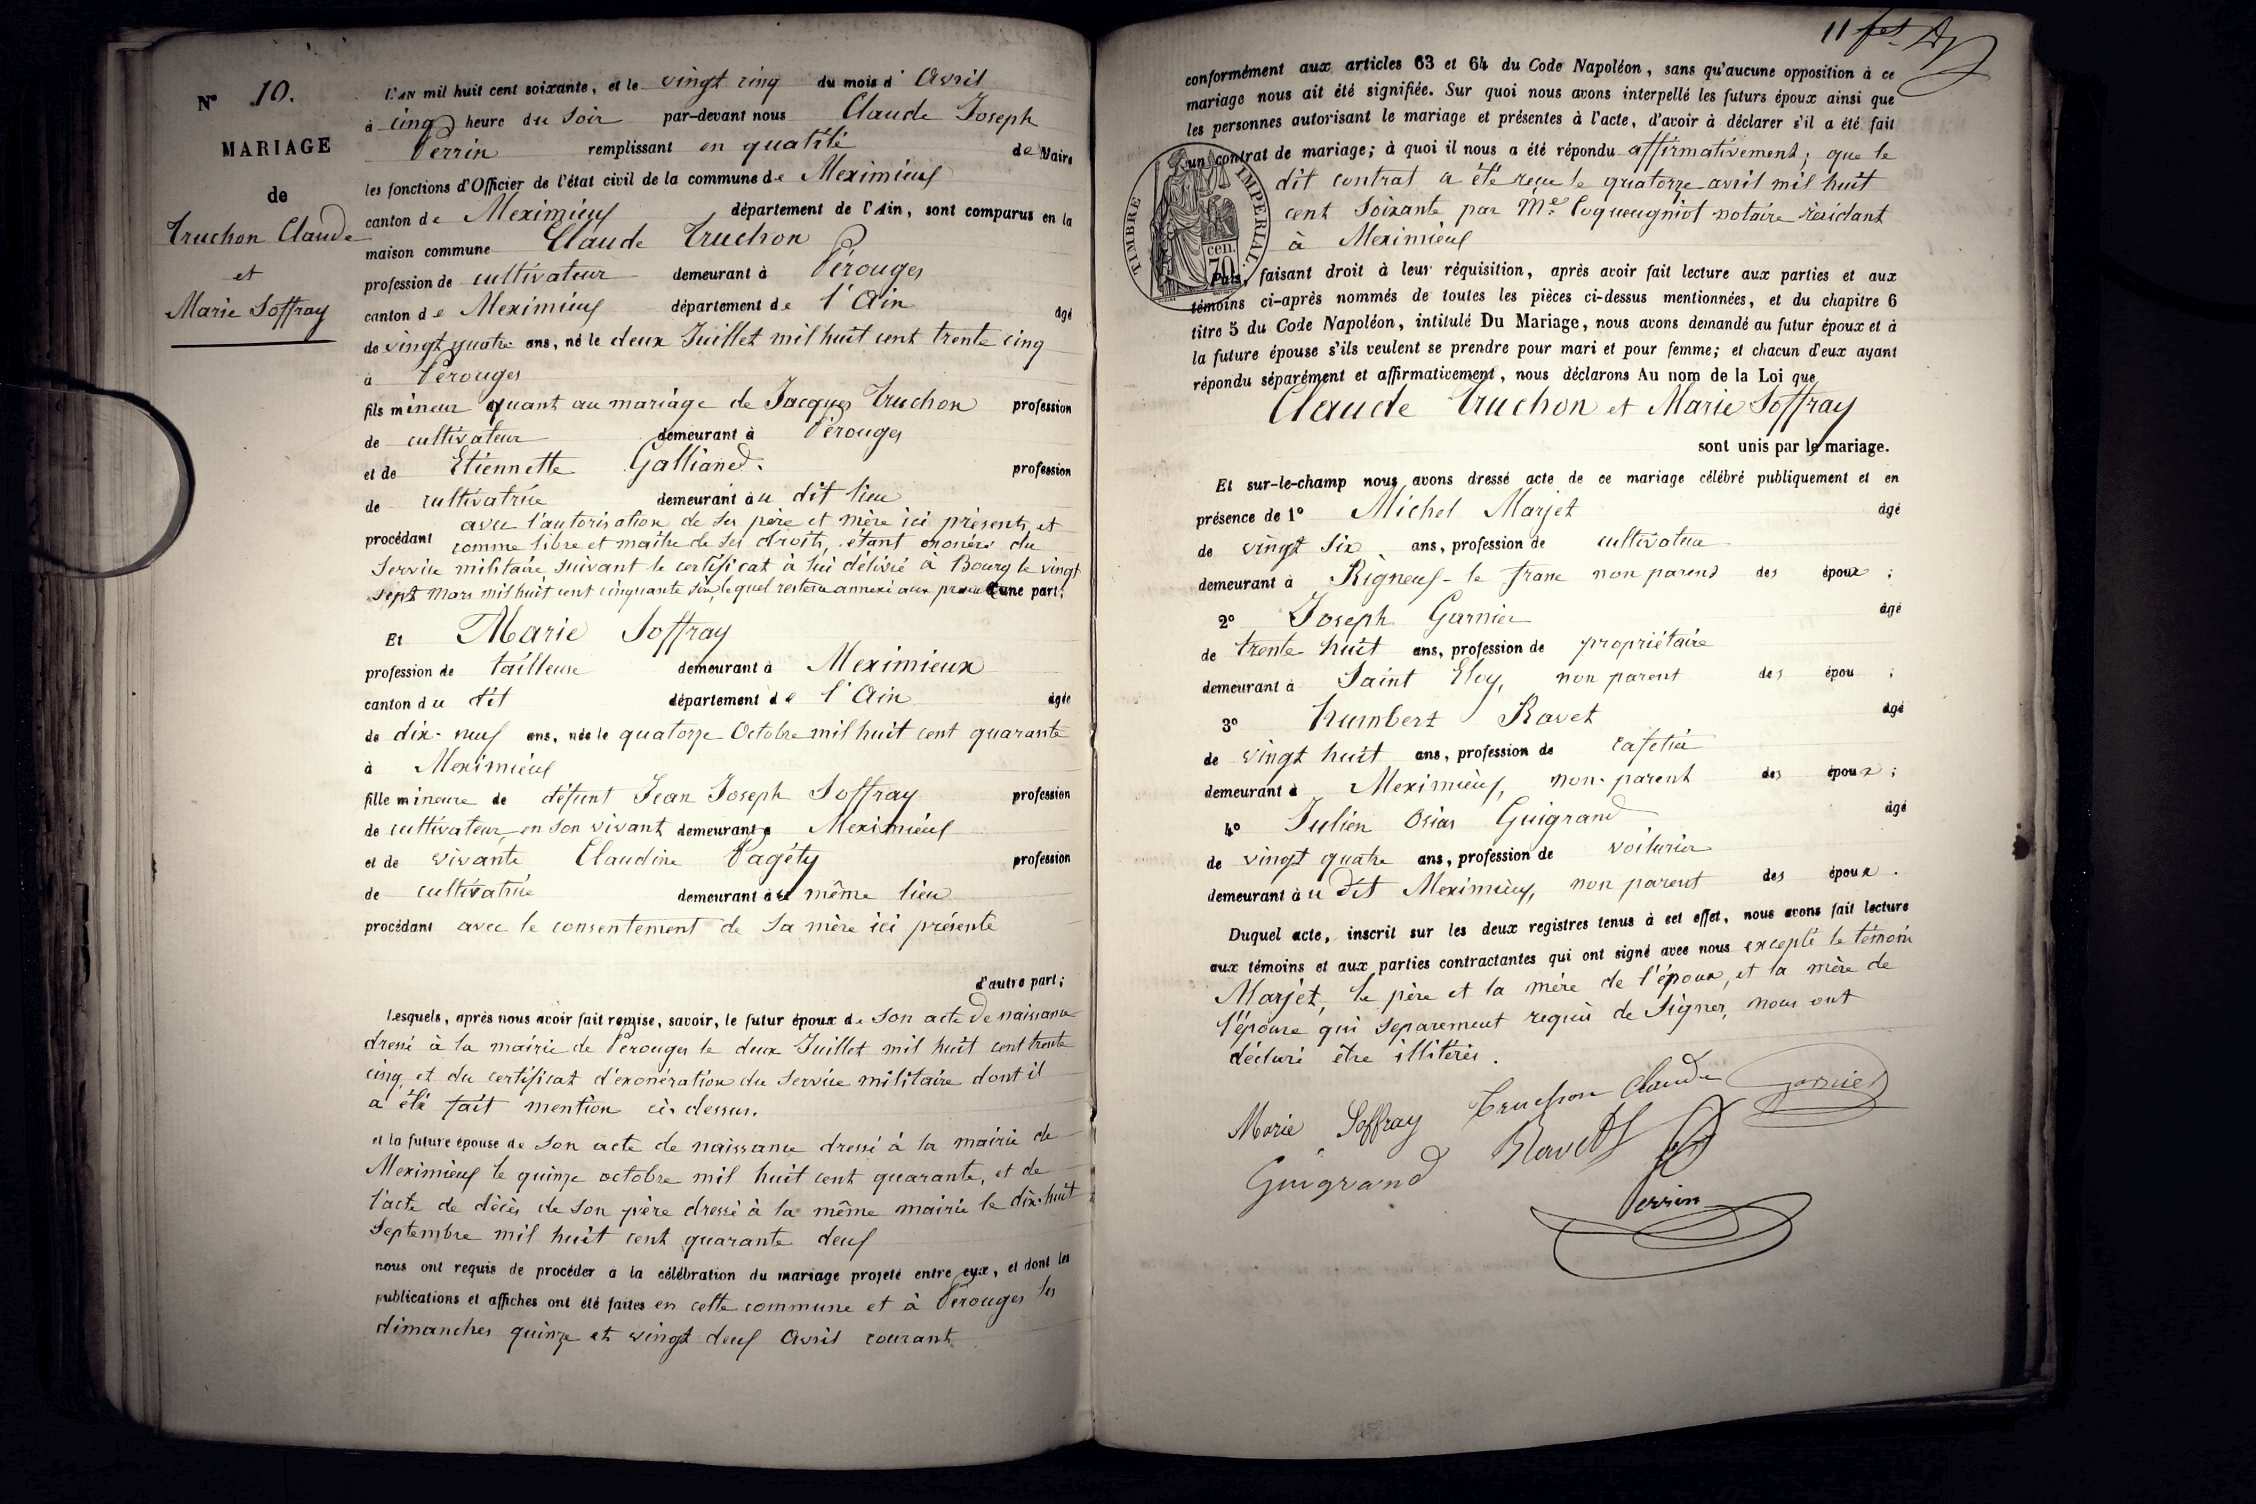 N° 10.
MARIAGE
de
Truchon Claude
et
Marie Soffray
L'AN mil huit cent soixante, et le vingt cinq du mois d' Avril
à cinq heure du soir par-devant nous Claude Joseph
Perrin remplissant en qualité de Maire
les fonctions d'Officier de l'état civil de la commune de Meximieux
canton de Meximieux département de l'Ain, sont comparus en la
maison commune Claude Truchon
profession de cultivateur demeurant à Pérouges
canton de Meximieux département de l'Ain âgé
de vingt quatre ans, né le deux Juillet mil huit cent trente cinq
à Pérouges
fils mineur quant au mariage de Jacques Truchon profession
de cultivateur demeurant à Pérouges
et de Etiennette Galliand. profession
de cultivatrice demeurant au dit lieu
procédant avec l'autorisation de ses père et mère ici présents, et
comme libre et maître de ses droits, étant exonéré du
service militaire suivant le certificat à lui délivré à Bourg le vingt
sept Mars mil huit cent cinquante six, lequel restera annexé aux d'une part;
Et Marie Soffray
profession de tailleuse demeurant à Meximieux
canton du dit département de l'Ain âgée
de dix-neuf ans, née le quatorze Octobre mil huit cent quarante
à Meximieux
fille mineure de défunt Jean Joseph Soffray profession
de cultivateur, en son vivant demeurant à Meximieux
et de vivante Claudine Pagéty profession
de cultivatrice demeurant au même lieu
procédant avec le consentement de sa mère ici présente
d'autre part;
Lesquels, après nous avoir fait remise, savoir, le futur époux de son acte de naissance
dressé à la mairie de Pérouges le deux Juillet mil huit cent trente
cinq, et du certificat d'exonération du service militaire dont il
a été fait mention ci-dessus.
et la future épouse de son acte de naissance dressé à la mairie de
Meximieux le quinze octobre mil huit cent quarante, et de
l'acte de décès de son père dressé à la même mairie le dix-huit
Septembre mil huit cent quarante deux
nous ont requis de procéder à la célébration du mariage projeté entre eux, et dont les
publications et affiches ont été faites en cette commune et à Pérouges les
dimanches quinze et vingt deux Avril courant
11
conformément aux articles 63 et 64 du Code Napoléon, sans qu'aucune opposition à ce
mariage nous ait été signifiée. Sur quoi nous avons interpellé les futurs époux ainsi que
les personnes autorisant le mariage et présentes à l'acte, d'avoir à déclarer s'il a été fait
un contrat de mariage; à quoi il nous a été répondu affirmativement; que le
dit contrat a été reçu le quatorze avril mil huit
cent soixante par Me Coqueugniot notaire résidant
à Meximieux
TIMBRE IMPERIAL.
70 cen.
Puis, faisant droit à leur réquisition, après avoir fait lecture aux parties et aux
témoins ci-après nommés de toutes les pièces ci-dessus mentionnées, et du chapitre 6
titre 5 du Code Napoléon, intitulé Du Mariage, nous avons demandé au futur époux et à
la future épouse s'ils veulent se prendre pour mari et pour femme; et chacun d'eux ayant
répondu séparément et affirmativement, nous déclarons Au nom de la Loi que
Claude Truchon et Marie Soffray
sont unis par le mariage.
Et sur-le-champ nous avons dressé acte de ce mariage célébré publiquement et en
présence de 1° Michel Marjet âgé
de vingt six ans, profession de cultivateur
demeurant à Rigneux-le franc non parent des époux ;
2° Joseph Garnier âgé
de trente huit ans, profession de propriétaire
demeurant à Saint Eloy, non parent des épou ;
3° humbert Ravet âgé
de vingt huit ans, profession de cafetier
demeurant à Meximieux, non-parent des époux ;
4° Julien Osias Guigrand âgé
de vingt quatre ans, profession de voiturier
demeurant au dit Meximieux, non parent des époux.
Duquel acte, inscrit sur les deux registres tenus à cet effet, nous avons fait lecture
aux témoins et aux parties contractantes qui ont signé avec nous excepté le témoin
Marjet, le père et la mère de l'époux, et la mère de
l'épouse qui séparement requis de signer, nous ont
déclaré être illitérés.
Marie Soffray Truchon Claude Garnier
Guigrand Ravet
Perrin